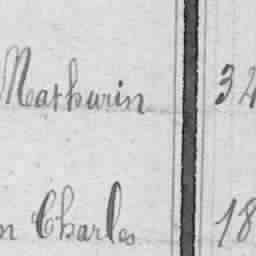 Mathurin 32
n Charles 18